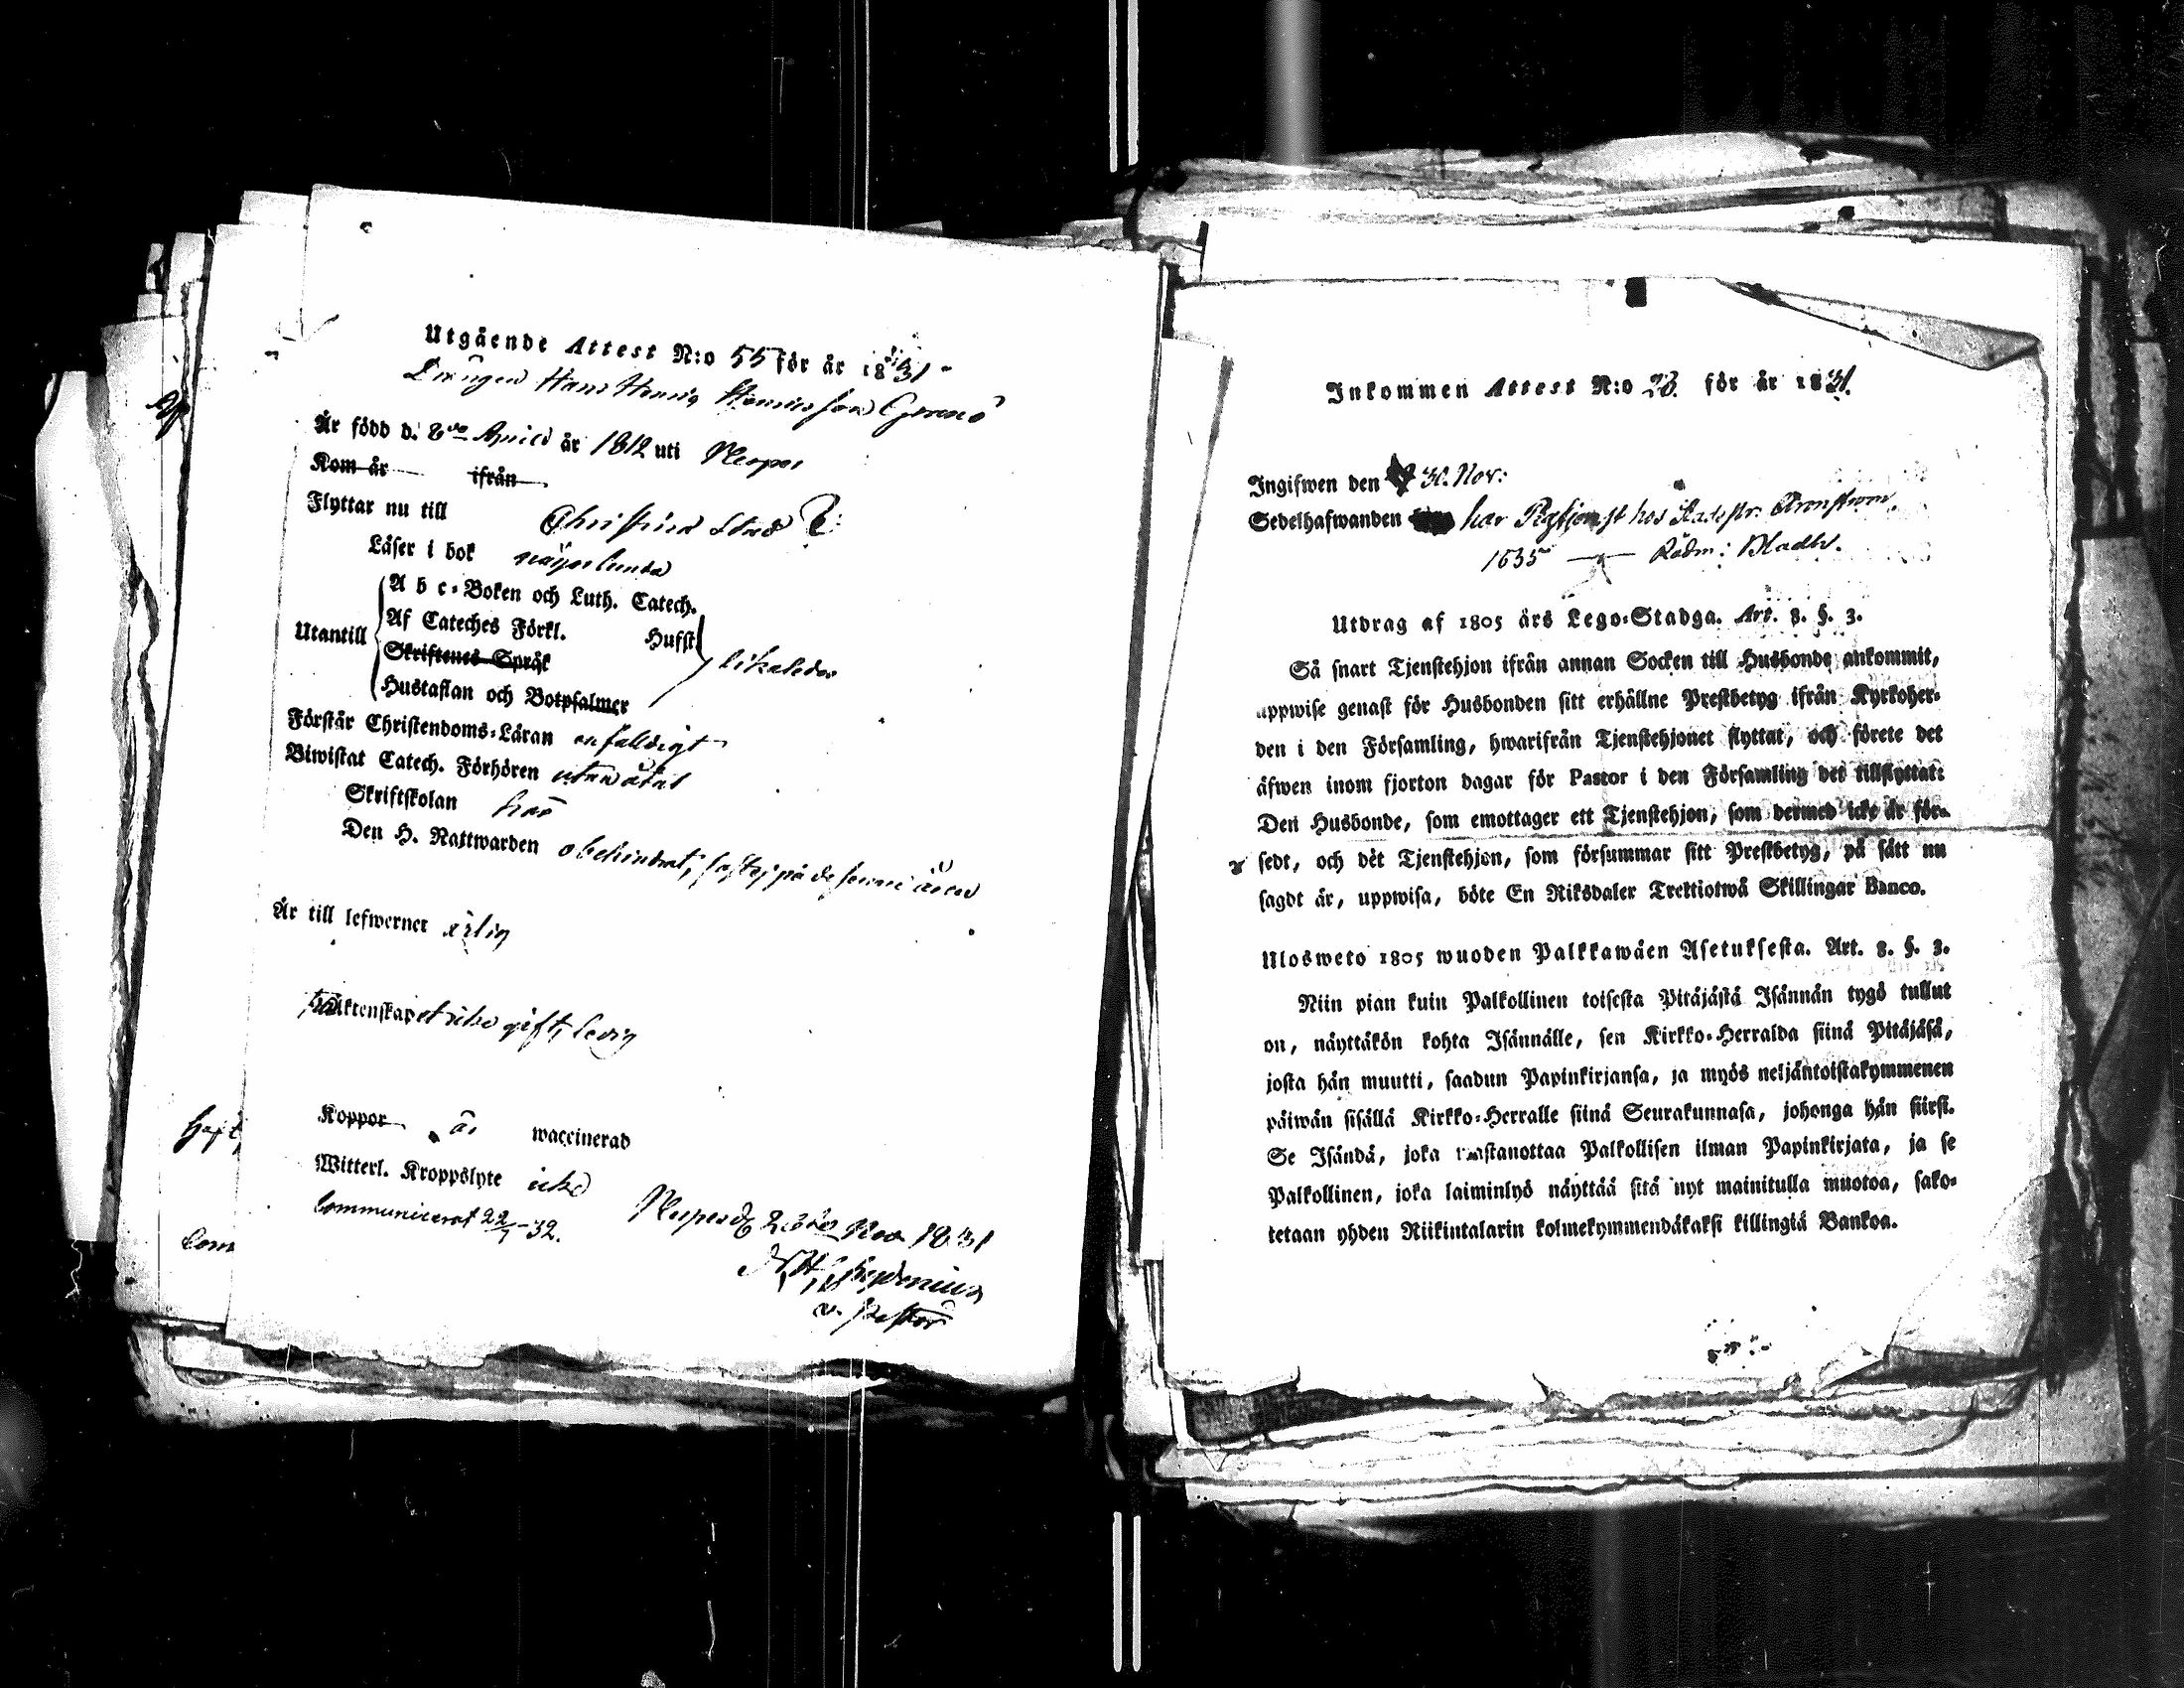 Utgående Attest N:o 55 för år 1831
Drängen Hans Henric Henricsson
Är född d. 8de April år 1812 uti Nerpes
Kom år ifrån
Flyttar nu till Christine Stad
Läser i bok någorlunda
A b c-Boken och Luth. Catech.
Af Cateches Förkl. Hufst
Utantill
Skriftenes Språk
likaledes
Hustaflan och Botpsalmer
Förstår Christendoms-Läran enfaldigt
Biwistat Catech. Förhören utan åtal
Skriftskolan
Den H. Nattwarden obehindrat, fast ej på de senare åren
Är till lefwernet ärlig
Äktenskapet icke gift, ledig
Koppor är waccinerad
Witterl. Kroppslyte icke
Communicerat 22/1 32.
Nerpes d. 23de Nov 1831
v. pastor
Inkommen Attest N:o 23. för år 1831.
Ingifwen den 30. Nov:
Sedelhafwanden har tjenst hos
1835 Rådm: Bladh.
Utdrag af 1805 års Lego-Stadga. Art. 8. §. 3.
Så snart Tjenstehjon ifrån annan Socken till Husbonde ankommit,
uppwise genast för Husbonden sitt erhållne Prestbetyg ifrån Kyrkoher-
den i den Församling, hwarifrån Tjenstehjonet flyttat, och förete det
äfwen inom fjorton dagar för Pastor i den Församling det tillflyttat:
Den Husbonde, som emottager ett Tjenstehjon, som dermed icke är för-
sedt, och det Tjenstehjon, som försummar sitt Prestbetyg, på sätt nu
sagdt är, uppwisa, böte En Riksdaler Trettiotwå Skillingar Banco.
Ulosweto 1805 wuoden Palkkawäen Asetuksesta. Art. 8. §. 3.
Niin pian kuin Palkollinen toisesta Pitäjästä Isännän tygö tullut
on, näyttäkön kohta Isännälle, sen Kirkko-Herralda siinä Pitäjäsä,
josta hän muutti, saadun Papinkirjansa, ja myös neljäntoistakymmenen
päiwän sisällä Kirkko-Herralle siinä Seurakunnasa, johonga hän siirsi.
Se Isändä, joka wastanottaa Palkollisen ilman Papinkirjata, ja se
Palkollinen, joka laiminlyö näyttää sitä nyt mainitulla muotoa, sako-
tetaan yhden Riikintalarin kolmekymmendäkaksi killingiä Bankoa.